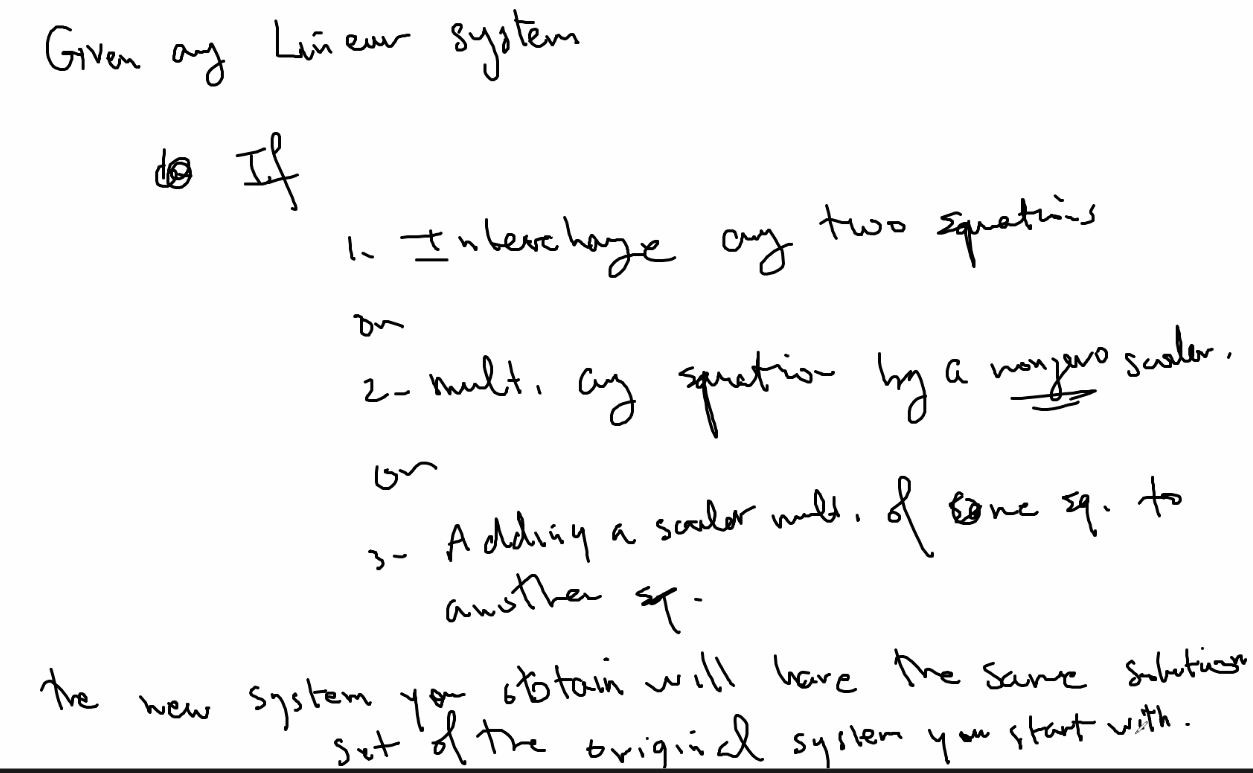 Given any Linear system
If
1. Interchange any two equations
or
2- mult. any equation by a nonzero scaler.
or
3- Adding a scaler mult. of one eq. to
another eq.
the new system you obtain will have the same solution
set of the original system you start with.